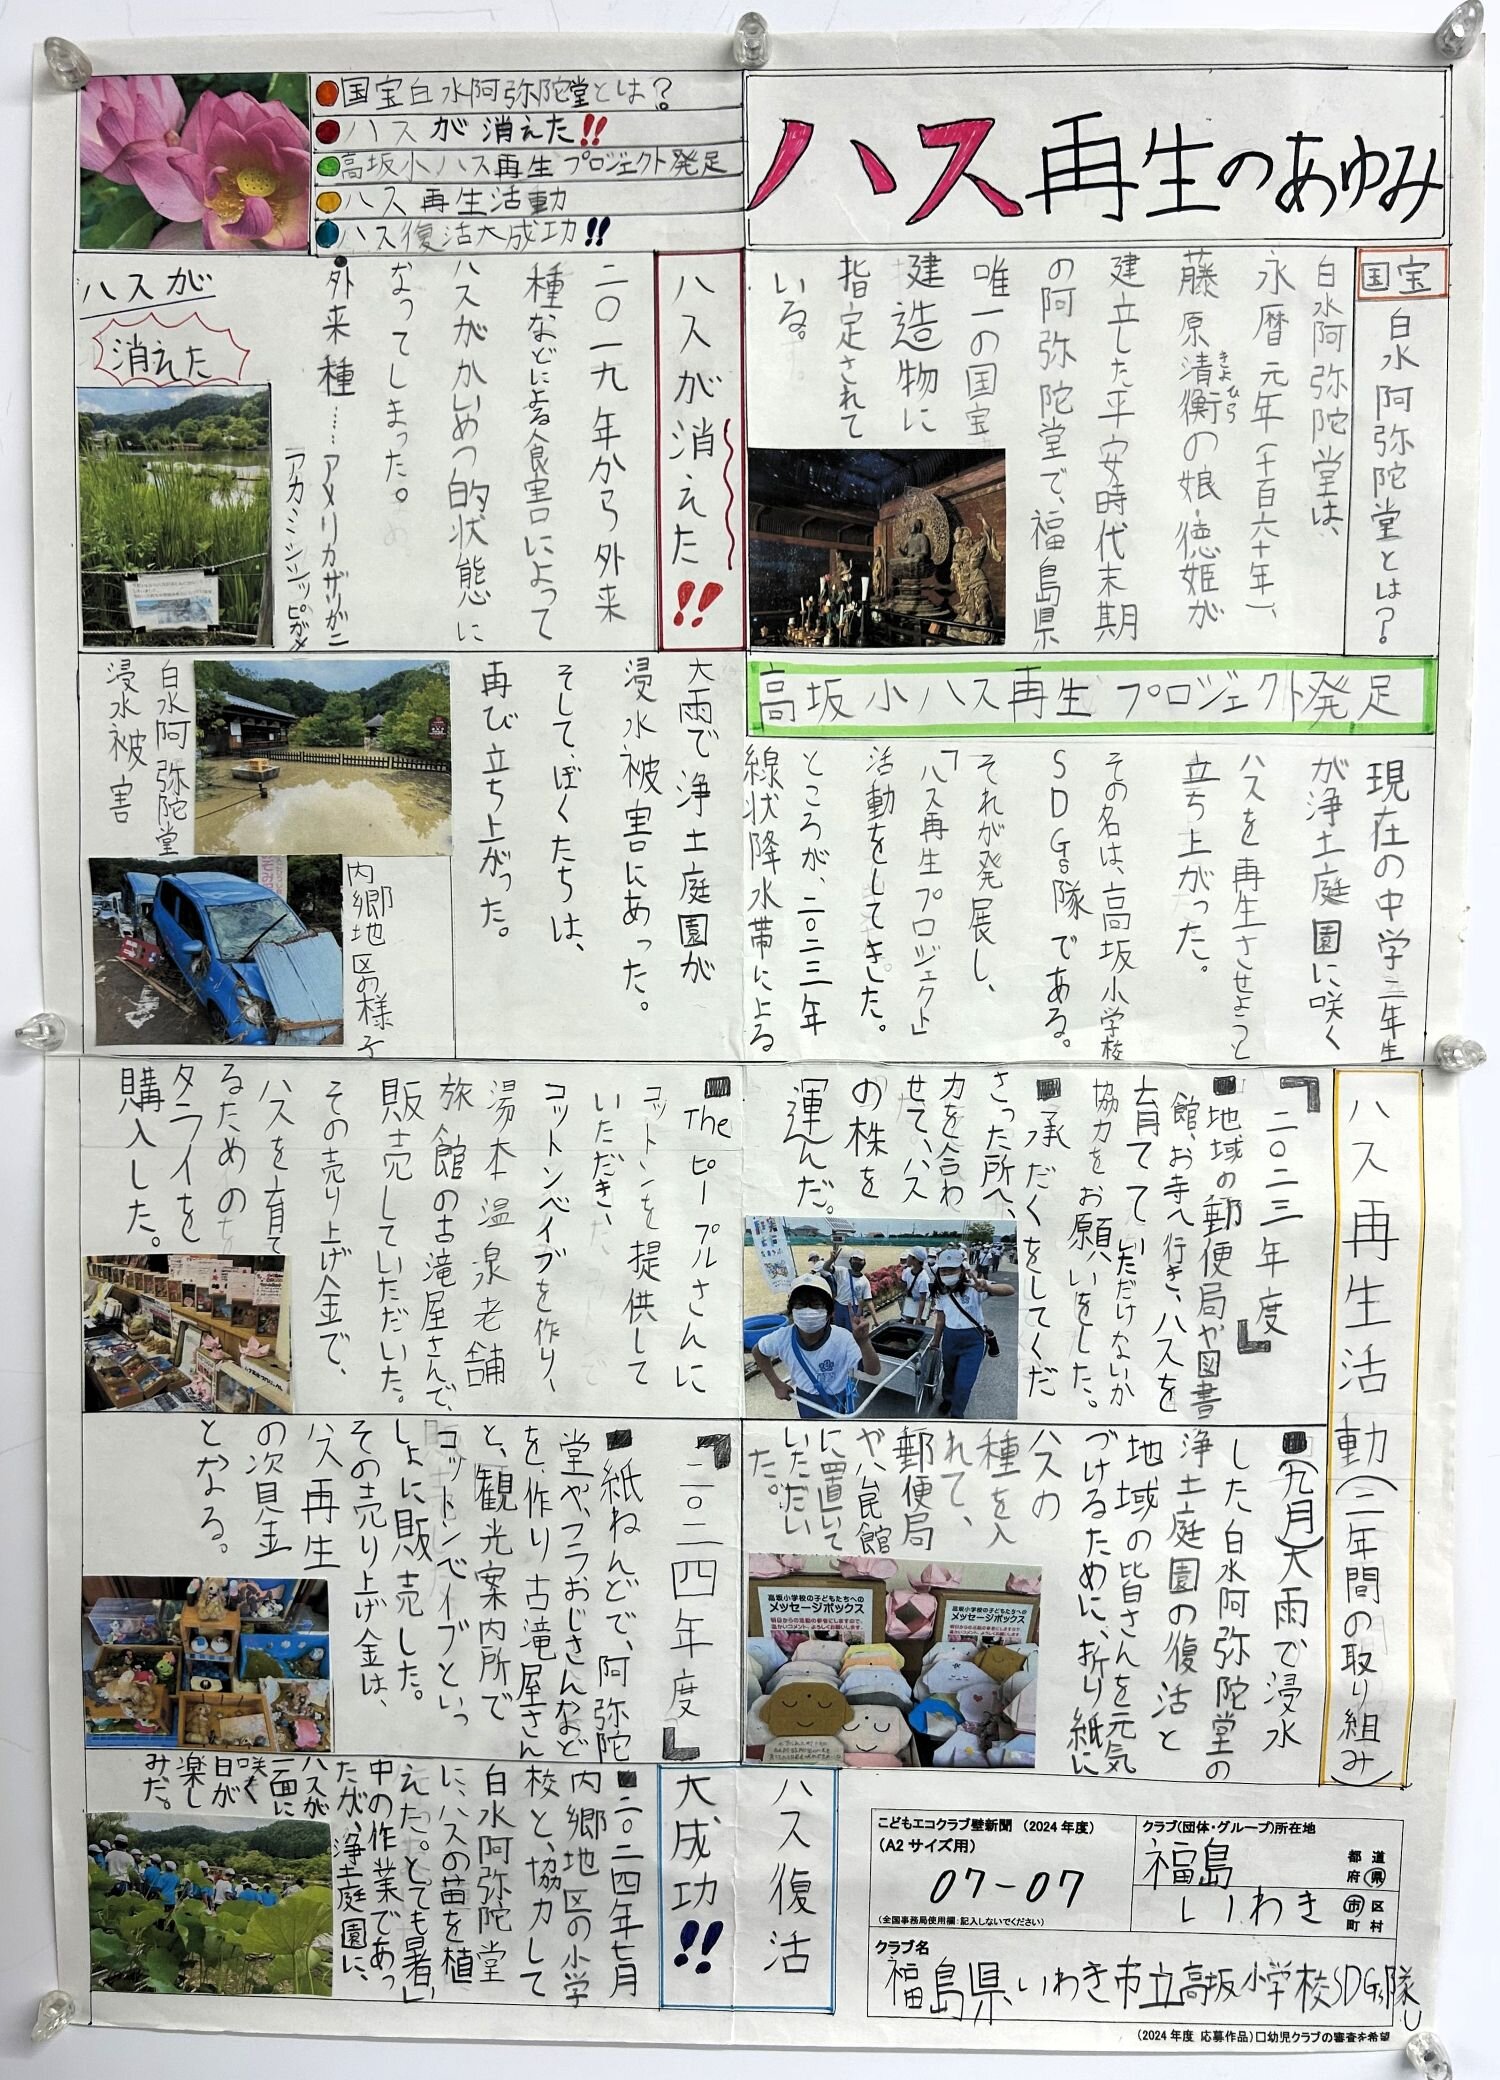 ハス再生のあゆみ
国宝白水阿弥陀堂とは?
ハスが消えた!!
高坂小ハス再生プロジェクト発足
ハス再生活動
ハス復活大成功!!
国宝白水阿弥陀堂とは?
白水阿弥陀堂は、
永暦元年(千百六十年)、
藤原清衡の娘・徳姫が
きよひら
建立した平安時代末期
の阿弥陀堂で、福島県
唯一の国宝
建造物に
指定されて
いる。
ハスが消えた!!
二〇一九年から外来
種などによる食害によって
ハスがかいめつ的状態に
なってしまった。
外来種……アメリカザリガニ
アカミミシシッピガメ
ハスが
消えた
高坂小ハス再生プロジェクト発足
現在の中学二年生
が浄土庭園に咲く
ハスを再生させようと
立ち上がった。
その名は、高坂小学校
SDGs隊である。
それが発展し、
「ハス再生プロジェクト」
活動をしてきた。
ところが、二〇二三年
線状降水帯による
大雨で浄土庭園が
浸水被害にあった。
そして、ぼくたちは、
再び立ち上がった。
白水阿弥陀堂
浸水被害
内郷地区の様子
ハス再生活動(二年間の取り組み)
「二〇二三年度」
■地域の郵便局や図書
館、お寺へ行き、ハスを
育てていただけないか
協力をお願いをした。
■承だくをしてくだ
さった所へ、
力を合わ
せて、ハス
の株を
運んだ。
■Theピープルさんに
コットンを提供して
いただき、
コットンベイブを作り、
湯本温泉老舗
旅館の古滝屋さんで、
販売していただいた。
その売り上げ金で、
ハスを育て
るための
タライを
購入した。
■(九月)大雨で浸水
した白水阿弥陀堂の
浄土庭園の復活と
地域の皆さんを元気
づけるために、折り紙に
ハスの
種を入
れて、
郵便局
や公民館
に置いて
いただい
た。
高坂小学校の子どもたちへの
メッセージボックス
明日からの活動の参考にしますので、
温かいコメント、よろしくお願いします。
高坂小学校の子どもたちへの
メッセージボックス
「二〇二四年度」
■紙ねんどで、阿弥陀
堂や、フラおじさんなど
を作り古滝屋さん
と、観光案内所で
コットンベイブといっ
しょに販売した。
その売り上げ金は、
ハス再生
の資金
となる。
ハス復活
大成功!!
■二〇二四年七月
内郷地区の小学
校と、協力して
白水阿弥陀堂
に、ハスの苗を植
えた。とても暑い
中の作業であっ
たが、浄土庭園に、
ハスが
一面に
咲く
日が
楽し
みだ。
こどもエコクラブ壁新聞 (2024年度)
(A2サイズ用)
07-07
(全国事務局使用欄:記入しないでください)
クラブ(団体・グループ)所在地
福島
都 道
府 県
いわき
市 区
町 村
クラブ名
福島県いわき市立高坂小学校SDGs隊
(2024年度 応募作品)□幼児クラブの審査を希望